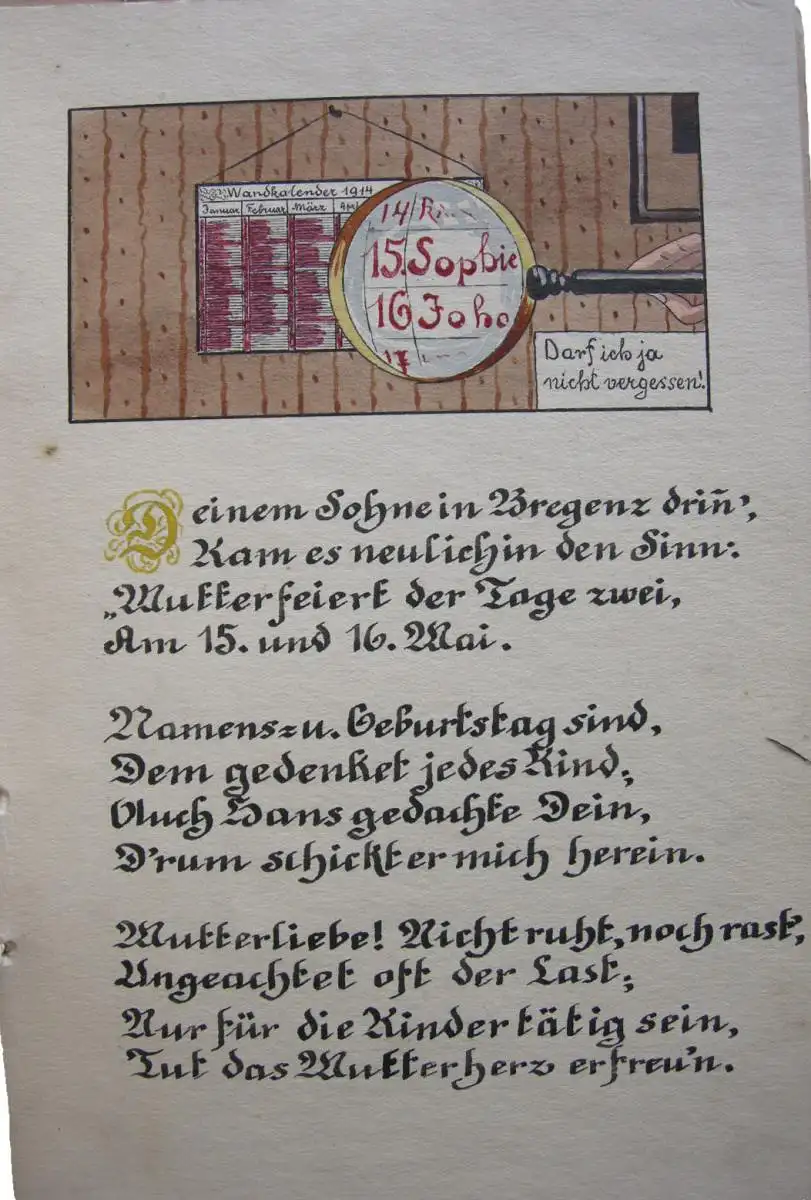 Wandkalender 1914
Januar Februar März
14 Ri
15. Sophie
16 Joho
17
Darf ich ja
nicht vergessen!
Deinem Sohne in Bregenz drin̄',
Kam es neulich in den Sinn:
„Mutter feiert der Tage zwei,
Am 15. und 16. Mai.
Namens=u. Geburtstag sind,
Dem gedenket jedes Kind;
Auch Hans gedachte Dein,
D'rum schickt er mich herein.
Mutterliebe! Nicht ruht, noch rast,
Ungeachtet oft der Last;
Nur für die Kinder tätig sein,
Tut das Mutterherz erfreu'n.